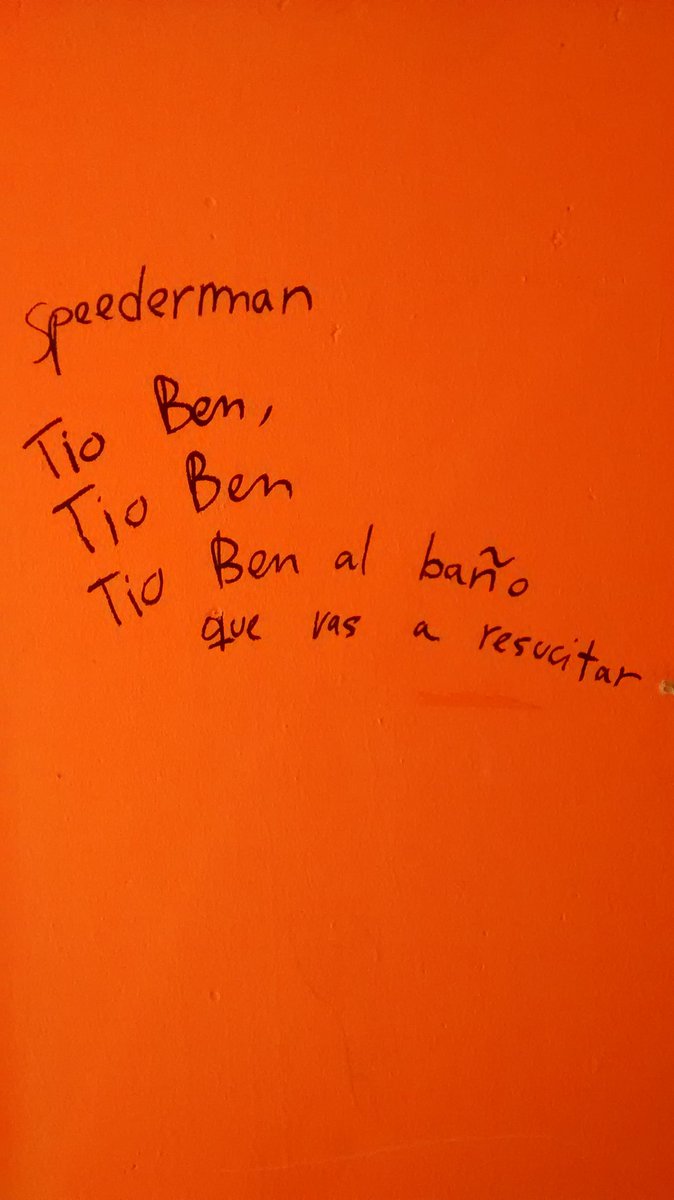 Speederman
Tio Ben,
Tio Ben
Tio Ben al baño
que vas a resucitar